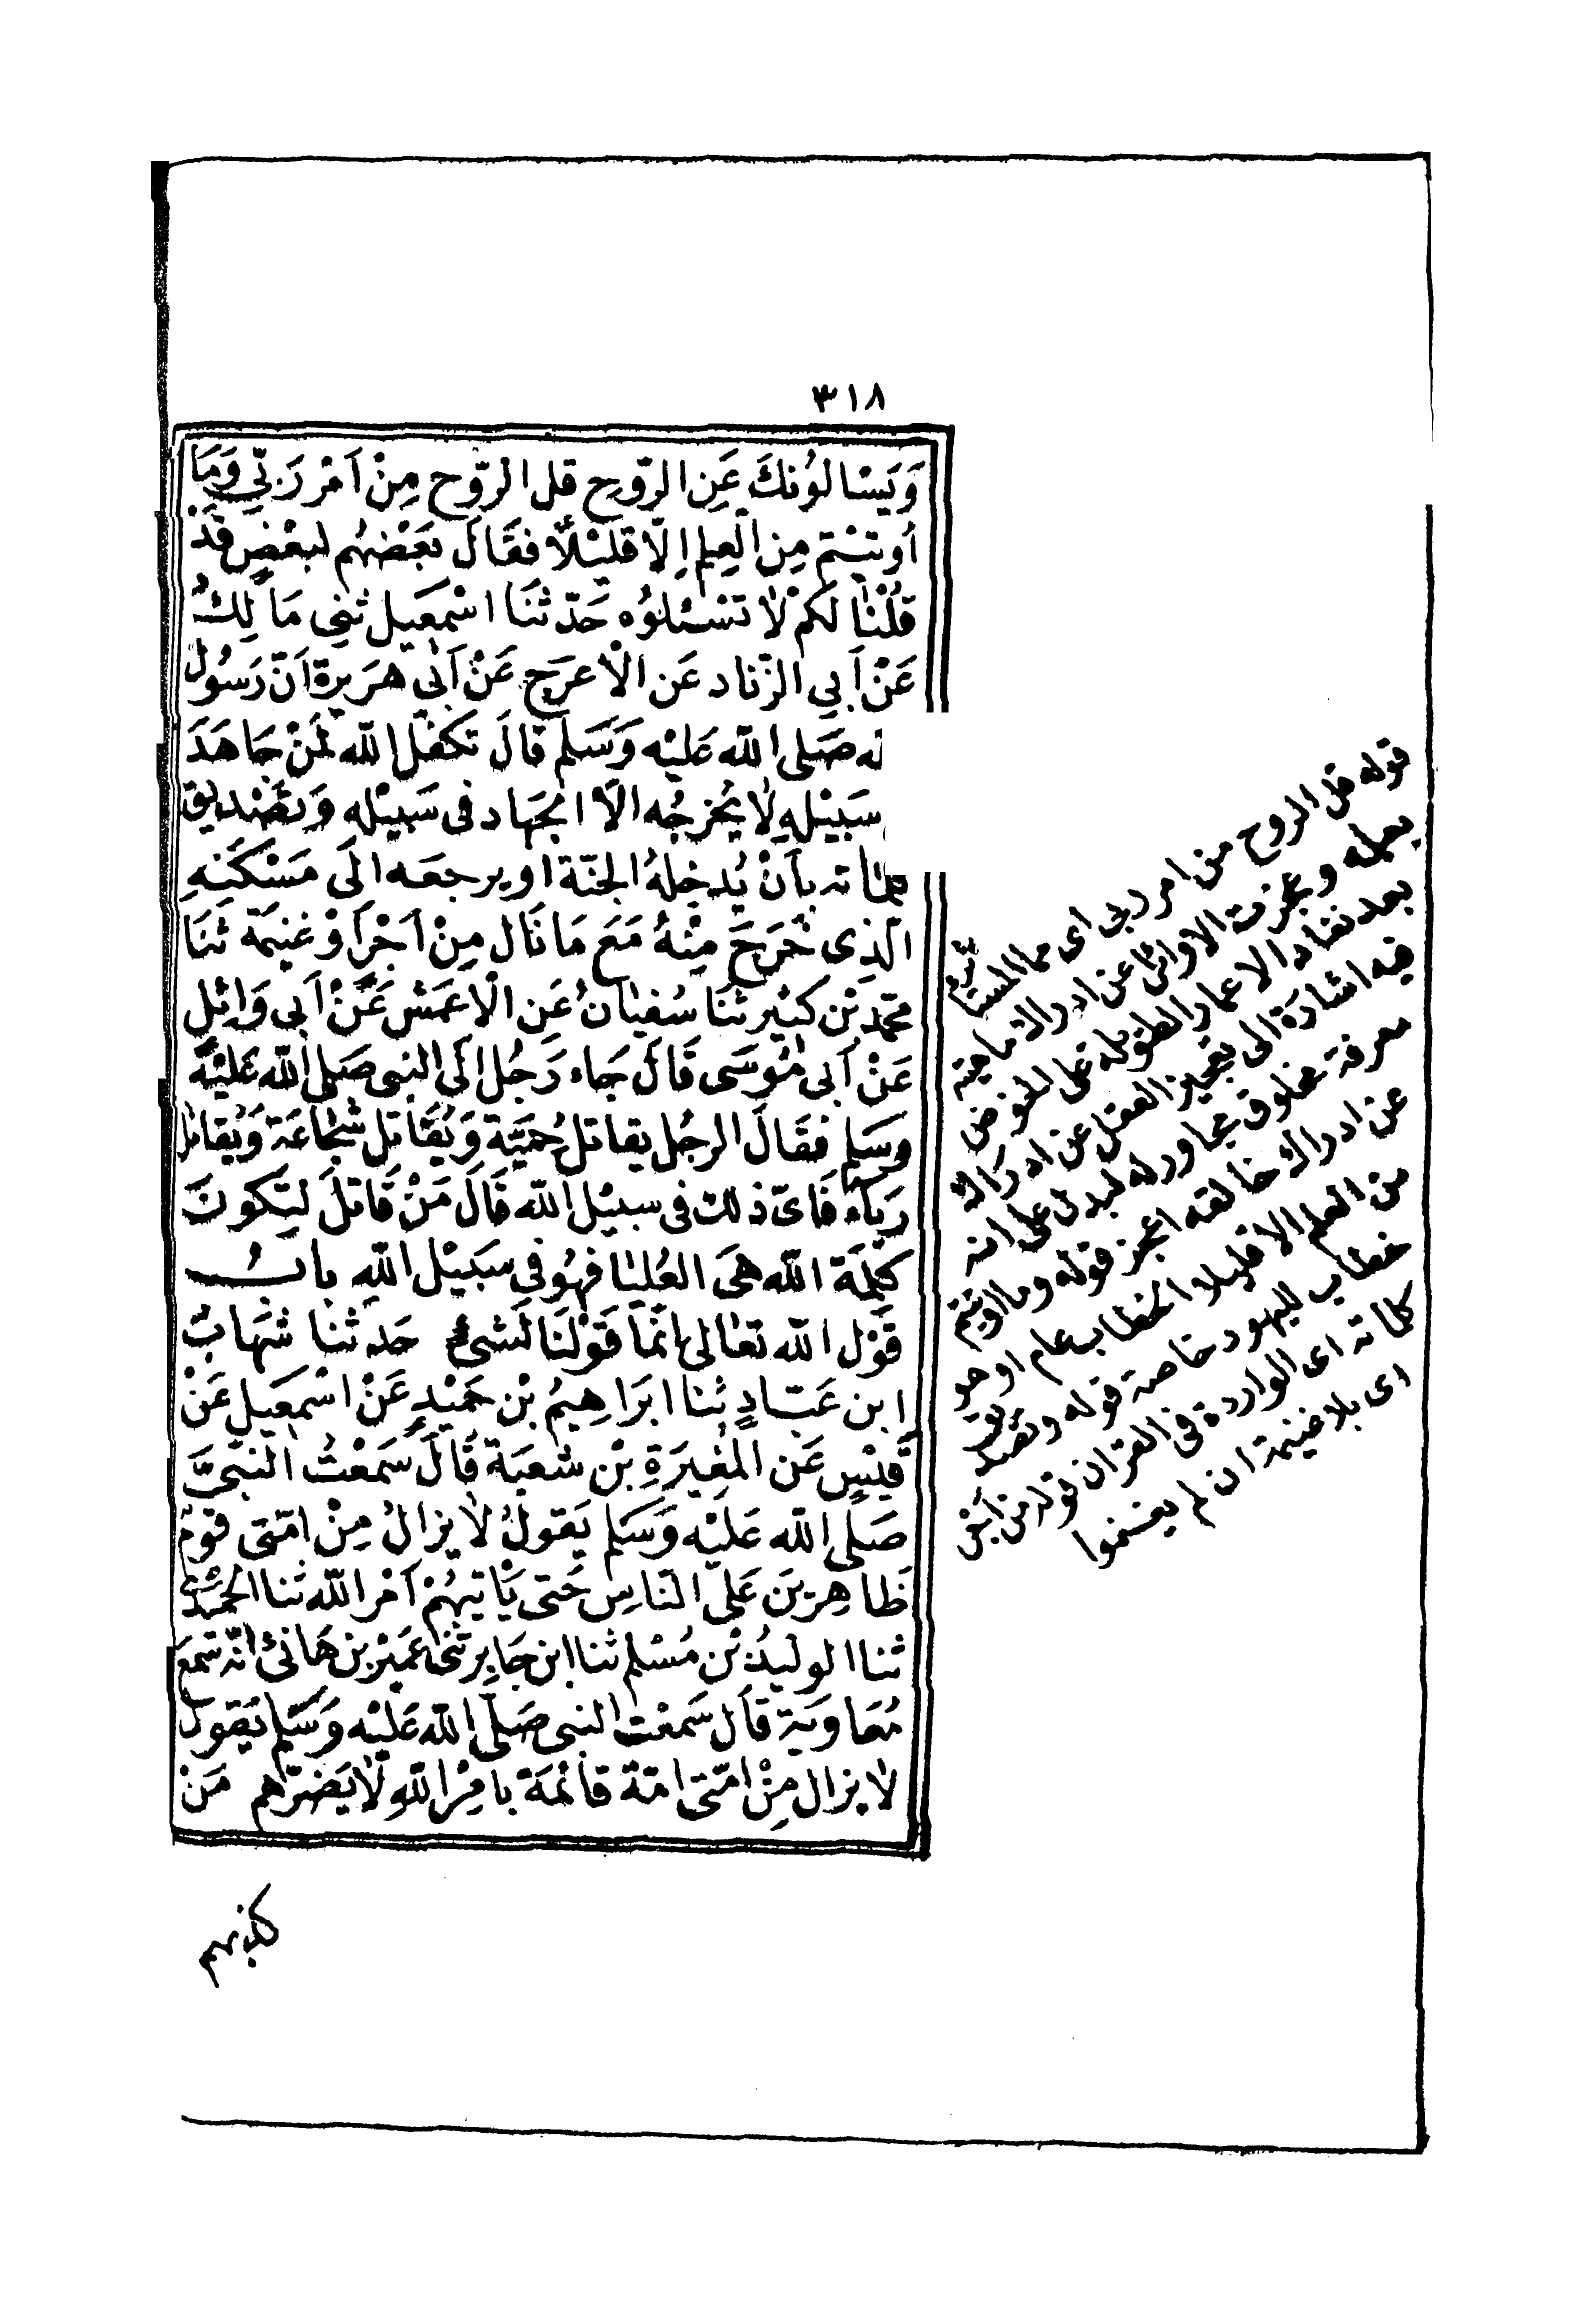 ٣١٨
وَيَسْالوُنكَ عَنِ الرّوُحِ قل الرّوُح مِنْ اَمْر رَبّيِ وَمَا
أوتيْتم مِن العِلم اِلّا قليْلًا فقَالَ بَعْضهُم لبعْضٍ قَدْ
قُلْنٰا لكُمْ لٰا تسْئلوُه حَدّثنَا اسْمعيل ثنِى مَالِكٌ
عَنْ اَبِي الزّناد عَن الْاعرَج عَنْ اَبي هرَيرة اَنّ رَسُولَ
لله صَلى الله عَليْه وَسَلم قالَ تكفّل الله لمَنْ جَاهَدَ
سَبيْلهِ لٰا يُخرجُه الّا الجهَاد في سَبيْله وَتصْديق
كلماته بأنْ يُدخِلهُ الجنّة او يرجعَه الَى مَسْكَنِهِ
الّذِى خَرَجَ مِنْهُ مَعَ مَا نَال مِنْ اَجْرٍ اَوْ غنيمَة ثنَا
محمد بْن كثيْر ثنَا سُفيانُ عَنِ الْاعمَش عَنْ اَبي وَائلٍ
عَنْ اَبى مُوسَى قَالَ جَاء رَجُل الَى النبى صَلى الله عَليْه
وسَلم فقَالَ الرجُل يقاتل حُميَّة وَيُقَاتل شجَاعَة وَيُقاتل
رِيَاء فَاىّ ذلك فى سبيْل الله قَالَ مَنْ قَاتلَ لتِكونَ
كَلِمَة الله هىَ العُليٰا فهُو في سَبيْل اللهِ بابُ
قَوْل الله تعٰالى انّمَا قَوْلنَا لشئٍ حَدثنا شهَابُ
ابن عَبّادٍ ثنا ابرَاهِيمُ بْن حَميْدٍ عَنْ اسْمعيل عَنْ
قَيْسٍ عَن المُغِيرَةِ بْن شعبَة قَالَ سَمعْتُ النبّىَّ
صَلى الله عَليْه وَسَلم يَقولُ لٰا يزالُ مِنْ امّتى قومٌ
ظَاهِرينَ عَلَى النّاسِ حَتى يَأتيَهُمْ اَمْر الله ثنا الحميْدى
ثنا الوليدُ بْن مُسْلم ثنا ابن جَابِر ثنى عمَيْر بن هَانئ انّه سَمعَ
مُعَاويَة قاَل سَمعْت النبى صَلى الله عَليْه وَسَلم يَقولُ
لٰا يزال مِنْ امّتى امّة قائمَة بامْرِ اللهِ لٰا يَضرّهم مَنْ
كذبهم
قوله قل الروح من امر ربى اى مما استأثر
بعلمه وعجزت الاوائل عن ادراك ماهيته
بعد نفاد الاعمار الطويلة على الخوض
فيه اشارة الى تعجيز العقل عن ادراك
معرفة مخلوق مجاور له ليدل على انه
عن ادراك خالقه اعجز قوله وما اوتيتم
من العلم الا قليلا الخطاب عام او هو
خطاب لليهود خاصة قوله وتصديق
كلماته اى الواردة فى القران قوله من اجر
اى بلا غنيمة ان لم يغنموا